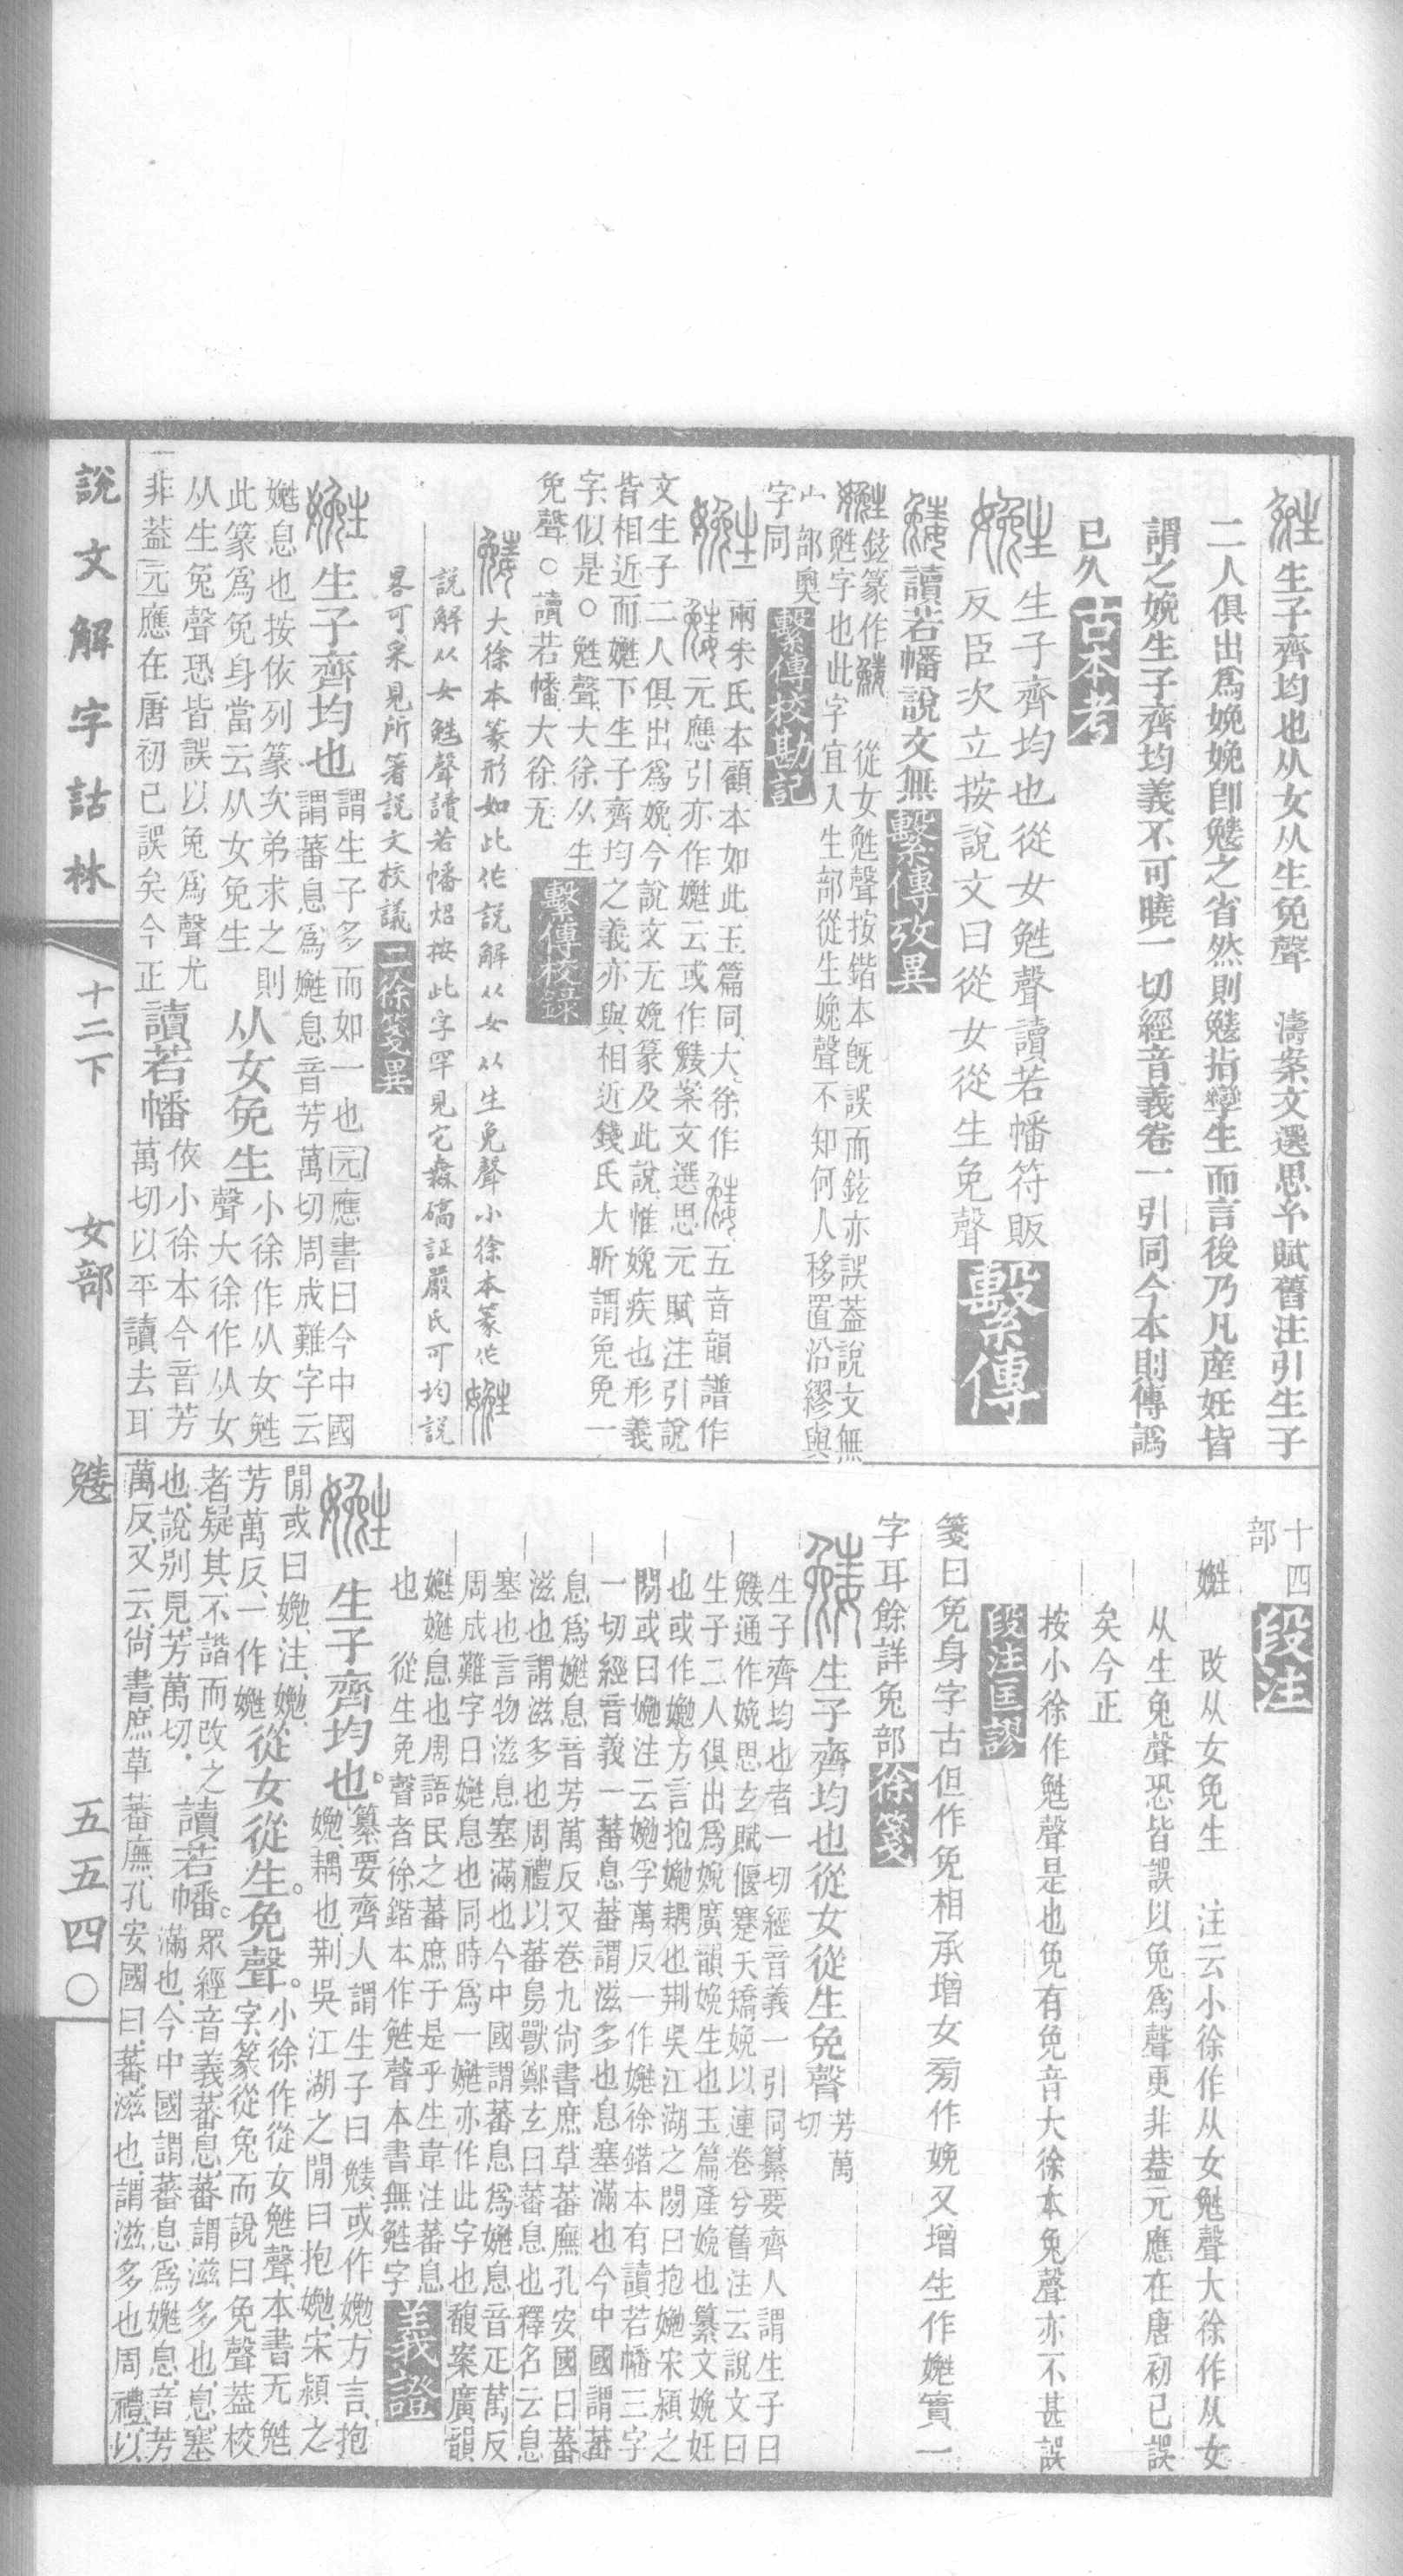 生子齊均也从女从生免聲　濤案文選思玄賦舊注引生子
二人俱出爲娩娩卽㝃之省然則㝃指孿生而言後乃凡産妊皆
謂之娩生子齊均義不可曉一切經音義卷一引同今本則傳譌
已久古本考
生子齊均也從女㝃聲讀若幡符販
反臣次立按說文曰從女從生免聲
繫傳
讀若幡說文無繫傳攷異
鉉篆作　從女㝃聲按鍇本旣誤而鉉亦誤葢說文無
㝃字也此字宜入生部從生娩聲不知何人移置沿繆與
山部奥
字同繫傳校勘記
兩朱氏本顧本如此玉篇同大徐作　五音韻譜作
　元應引亦作嬎云或作㝃案文選思元賦注引說
文生子二人俱出爲娩今說文无娩篆及此說惟娩疾也形義
皆相近而嬎下生子齊均之義亦與相近錢氏大昕謂免兔一
字似是○㝃聲大徐从生
免聲○讀若幡大徐无
繫傳校錄
大徐本篆形如此作說解从女从生免聲小徐本篆作
說解从女㝃聲讀若幡炤按此字罕見它無碻証嚴氏可均說
畧可采見所箸說文校議二徐箋異
生子齊均也謂生子多而如一也元應書曰今中國
謂蕃息爲嬎息音芳萬切周成難字云
嬎息也按依列篆次弟求之則
此篆爲免身當云从女免生从女免生小徐作从女㝃
聲大徐作从女
从生免聲恐皆誤以免爲聲尤
非葢元應在唐初已誤矣今正讀若幡依小徐本今音芳
萬切以平讀去耳
十四
部
段注
嬎　改从女免生　注云小徐作从女㝃聲大徐作从女
从生免聲恐皆誤以免爲聲更非葢元應在唐初已誤
矣今正
按小徐作㝃聲是也免有免音大徐本免聲亦不甚誤
段注匡謬
箋曰免身字古但作免相承增女旁作娩又增生作嬎實一
字耳餘詳兔部徐箋
生子齊均也從女從生免聲芳萬
切
生子齊均也者一切經音義一引同纂要齊人謂生子曰
㝃通作娩思玄賦偃蹇夭矯娩以連卷兮舊注云說文曰
生子二人俱出爲娩廣韻娩生也玉篇產娩也纂文娩妊
也或作嬎方言抱嬎耦也荆吳江湖之閒曰抱嬎宋潁之
閒或曰嬎注云嬎孚萬反一作嬎徐鍇本有讀若幡三字
一切經音義一蕃息蕃謂滋多也息塞滿也今中國謂蕃
息爲嬎息音芳萬反又卷九尚書庶草蕃廡孔安國曰蕃
滋也謂滋多也周禮以蕃鳥獸鄭玄曰蕃息也釋名云息
塞也言物滋息塞滿也今中國謂蕃息爲嬎息音正萬反
周成難字曰嬎息也同時爲一嬎亦作此字也馥案廣韻
嬎嬎息也周語民之蕃庶于是乎生韋注蕃息
也　從生免聲者徐鍇本作㝃聲本書無㝃字
義證
生子齊均也纂要齊人謂生子曰㝃或作嬎方言抱
嬎耦也荆吳江湖之閒曰抱嬎宋潁之
閒或曰嬎注嬎
芳萬反一作嬎從女從生免聲小徐作從女㝃聲本書无㝃
字篆從免而說曰免聲葢校
者疑其不諧而改之
也說別見芳萬切讀若幡眾經音義蕃息蕃謂滋多也息塞
滿也今中國謂蕃息爲嬎息音芳
萬反又云尚書庶草蕃廡孔安國曰蕃滋也謂滋多也周禮以
說文解字詁林
十二下　女部　㝃
五五四〇